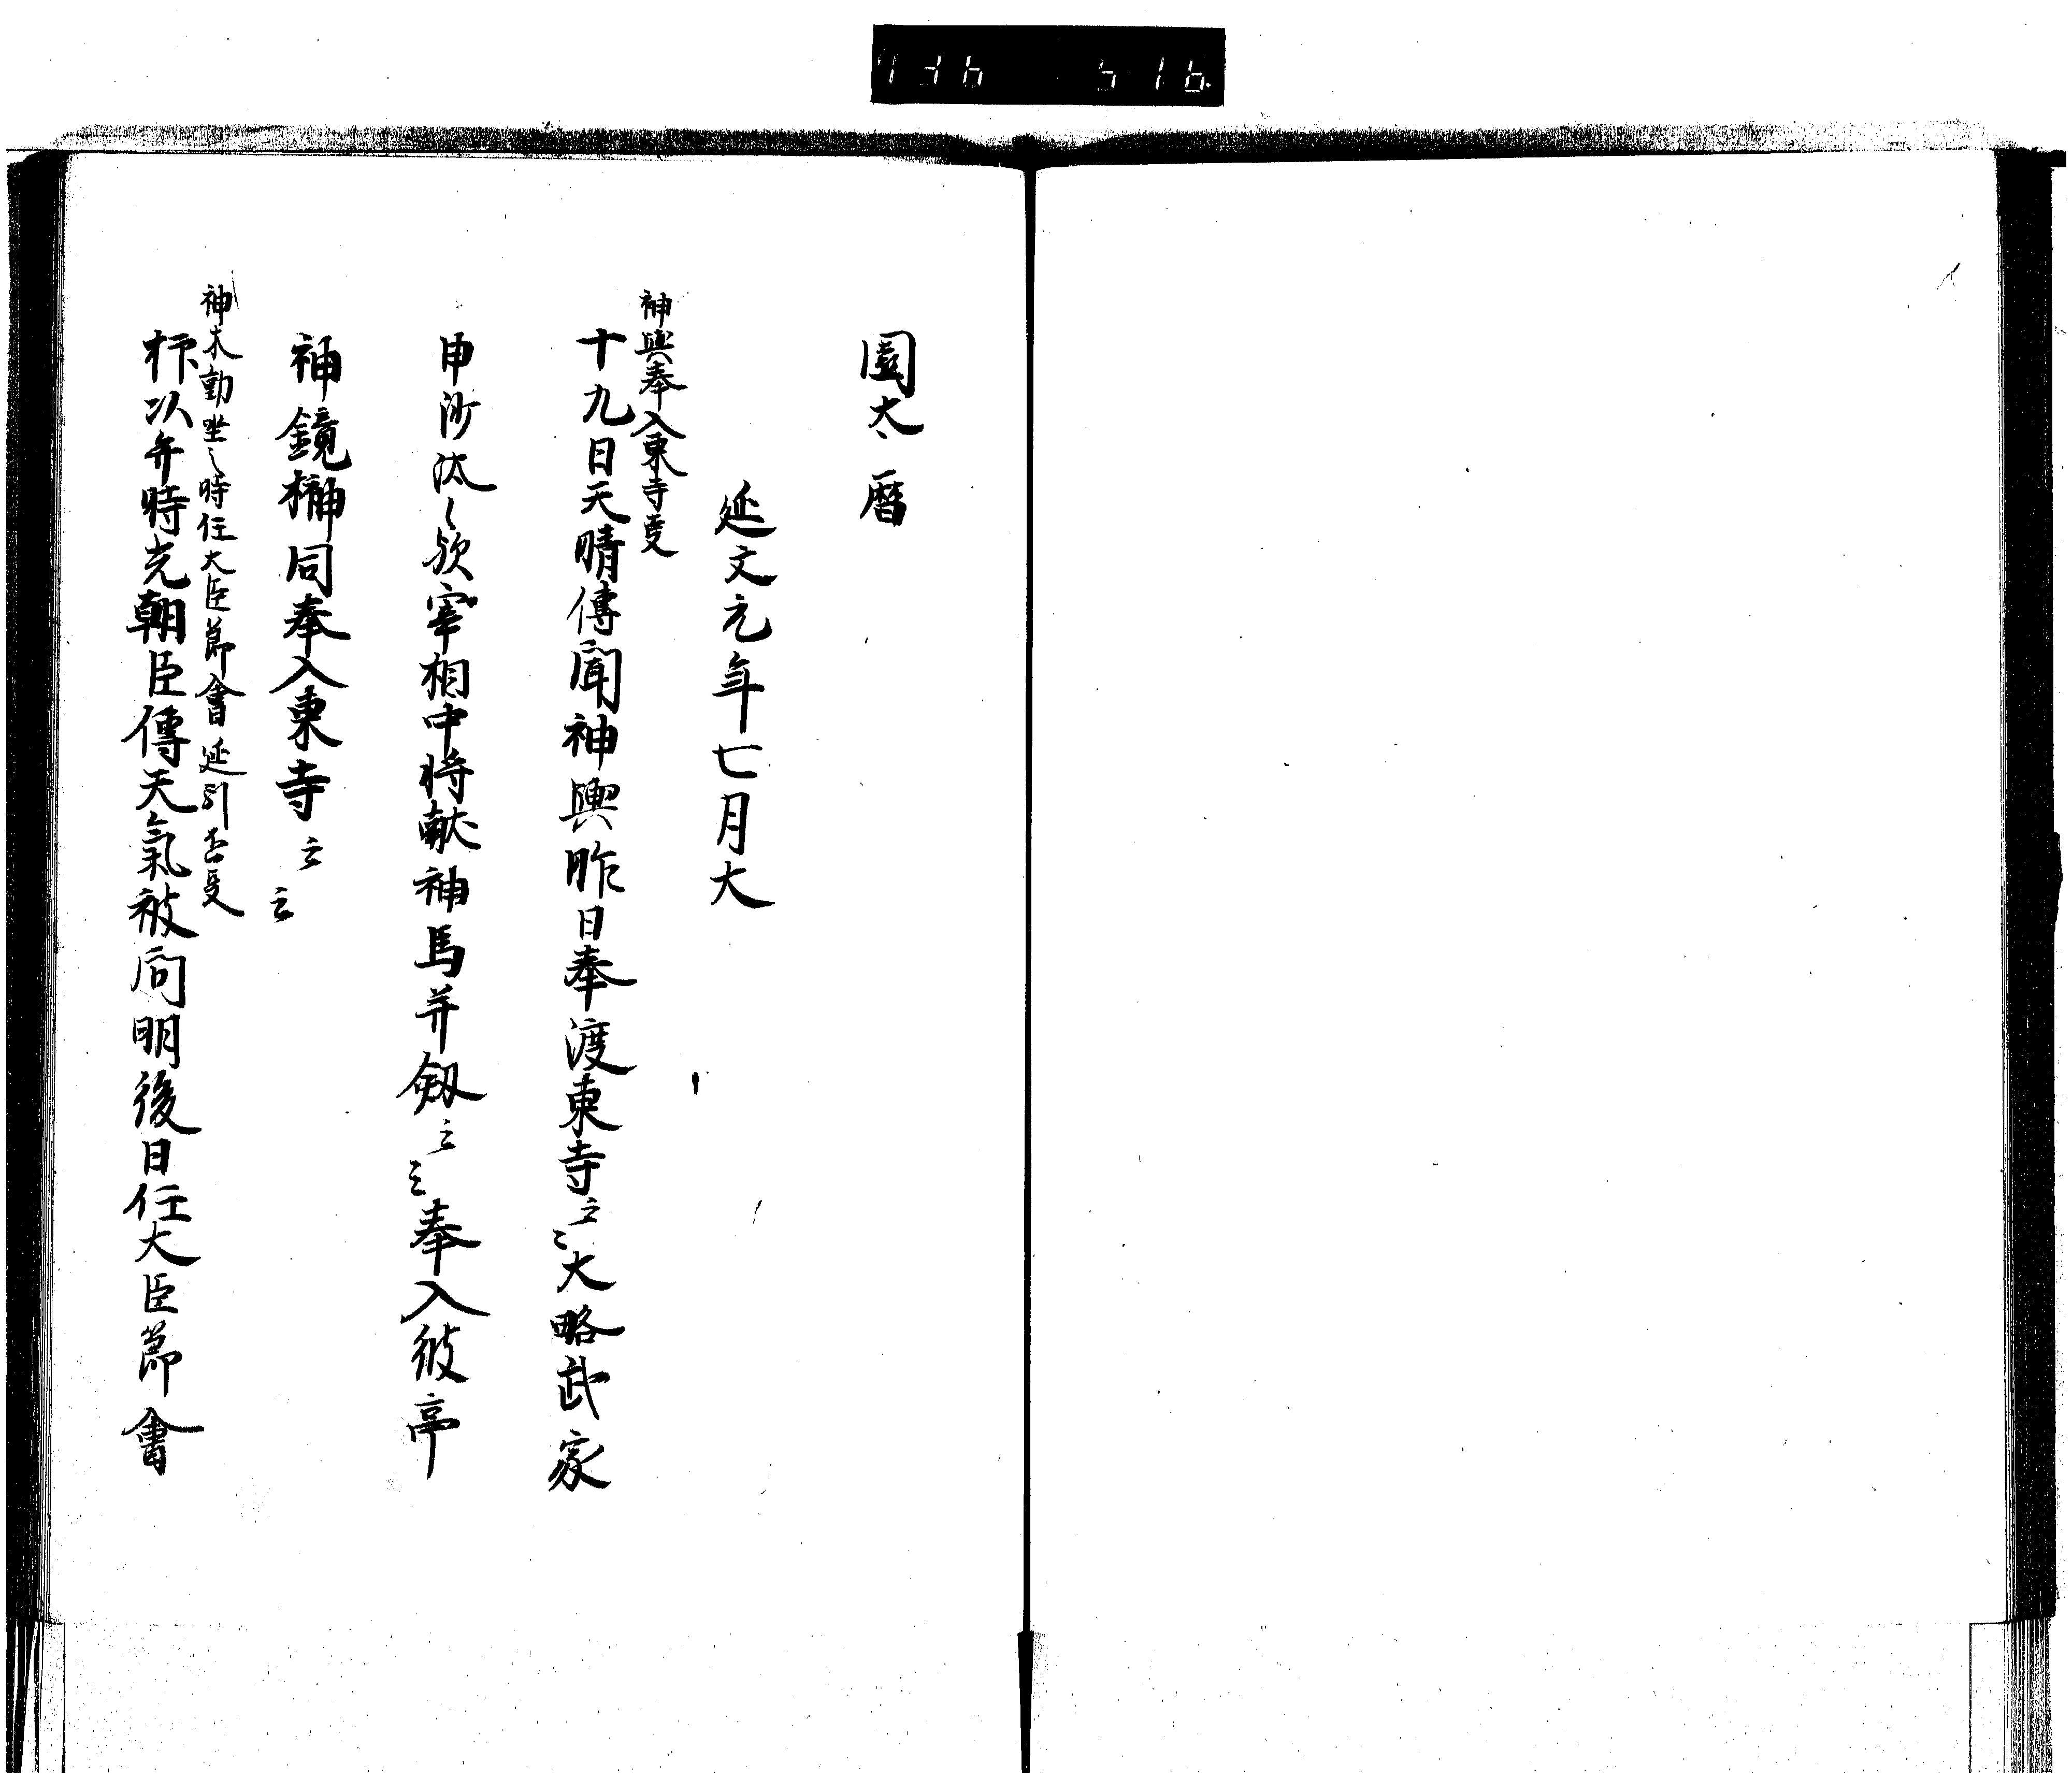 736 516.
園太暦
延文元年七月大
神輿奉入東寺事
十九日天晴傳聞神輿昨日奉渡東寺云々大略武家
申沙汰之欤宰相中将献神馬并釼云々奉入彼亭
神鏡榊同奉入東寺云云
神木動坐之時任大臣節會延引否事
抑以弁時光朝臣傳天氣被問明後日任大臣節會